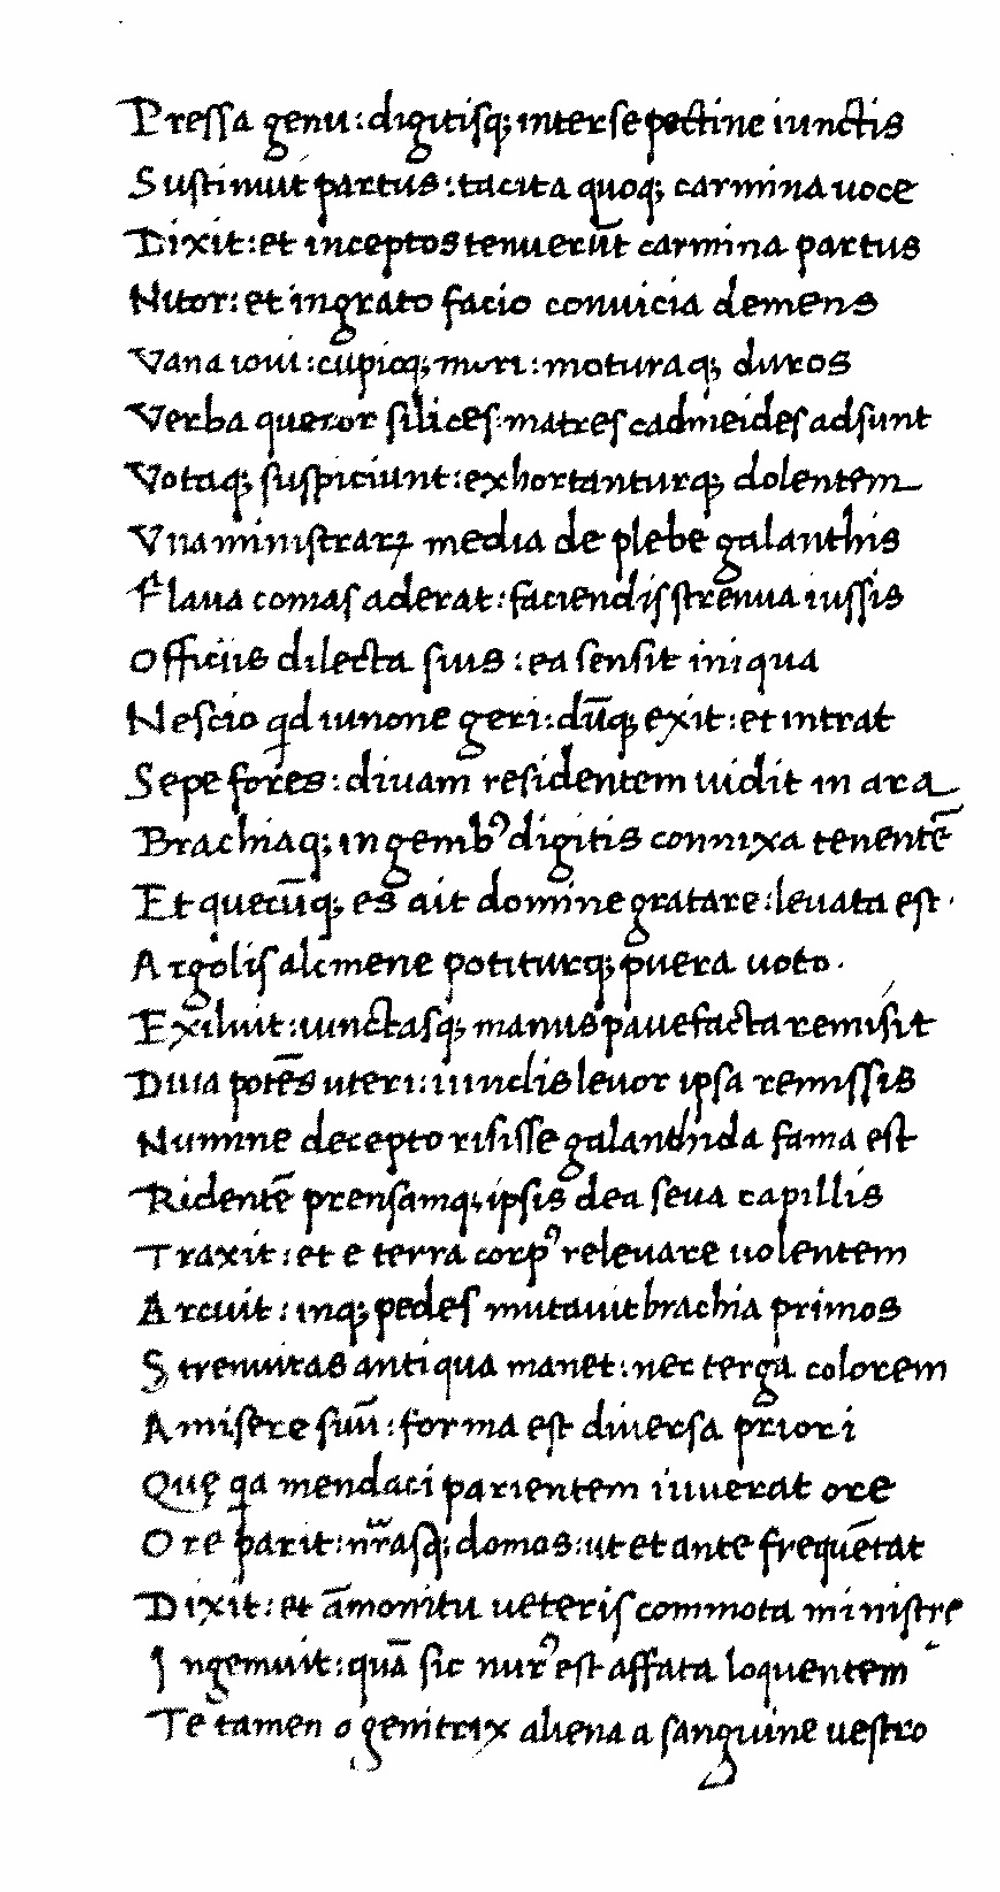 Pressa genu: digitisq; inter se pectine iunctis
Sustinuit partus: tacita quoq; carmina uoce
Dixit: et inceptos tenuerūt carmina partus
Nitor: et ingrato facio conuicia demens
Vana ioui: cupioq; mori: moturaq; duros
Verba queror silices: matres cadmeides adsunt
Votaq; suspiciunt: exhortanturq; dolentem
Vna ministraꝝ media de plebe galanthis
Flaua comas aderat: faciendis strenua iussis
Officiis dilecta suis: ea sensit iniqua
Nescio qd iunone geri: dūq; exit: et intrat
Sepe fores: diuam residentem uidit in ara
Brachiaq; in genibꝰ digitis connixa tenentē
Et quecūq; es ait domine gratare: leuata est.
Argolis alcmene potiturq; puera uoto.
Exiluit: iunctasq; manus pauefacta remisit
Diua potēs uteri: iunclis leuor ipsa remissis
Numine decepto risisse galanthida fama est
Ridentē prensamq; ipsis dea seua capillis
Traxit: et e terra corpꝰ releuare uolentem
Arcuit: inq; pedes mutauit brachia primos
Strenuitas antiqua manet: nec terga colorem
Amisere suū: forma est diuersa priori
Quę qa mendaci parientem iuuerat ore
Ore parit: nr̄asq; domos: ut et ante frequētat
Dixit: et āmonitu ueteris commota ministre
Ingemuit: quā sic nurꝰ est affata loquentem
Te tamen o genitrix aliena a sanguine uestro